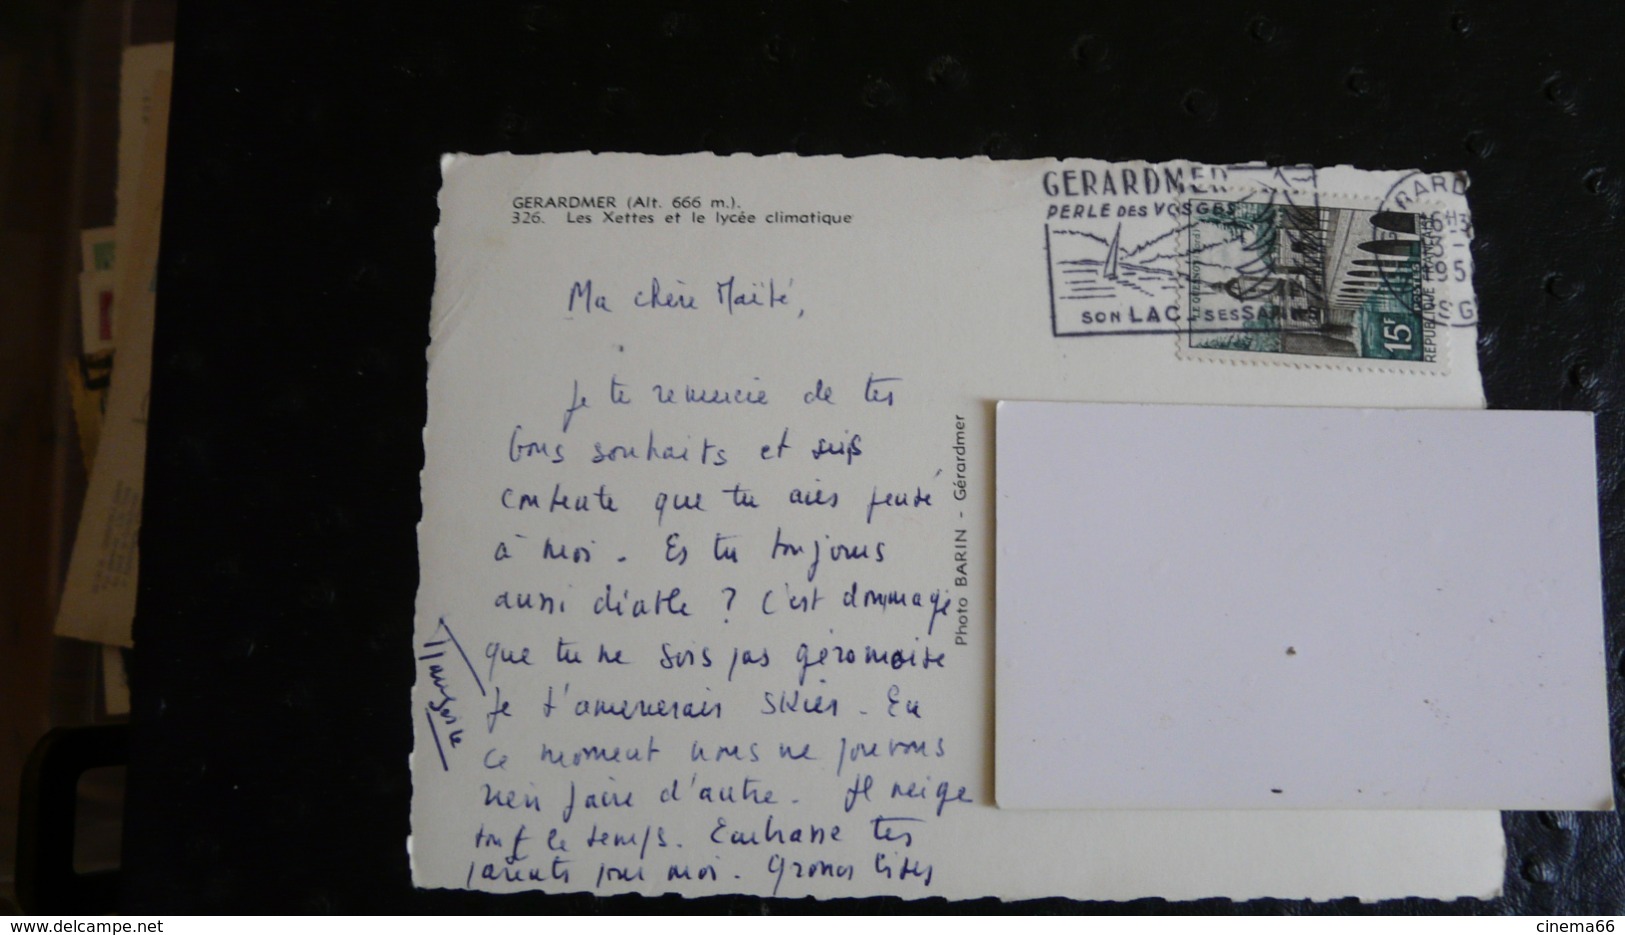 GERARDMER (Alt. 666 m.).
326. Les Xettes et le lycée climatique
GERARDMER
PERLE DES VOSGES
SON LAC _ SES SAPINS
LE QUESNOY (Nord)
15F
POSTES
REPUBLIQUE FRANÇAISE
Ma chère Maïté,
Je te remercie de tes
bons souhaits et suis
contente que tu aies pensé
à moi. Es tu toujours
aussi diable ? C'est dommage
que tu ne sois pas géromoise
Je t'amenerais skier. En
ce moment nous ne pouvons
rien faire d'autre. Il neige
tout le temps. Embrasse tes
parents pour moi. Grosses bises
Photo BARIN - Gérardmer
cinema66